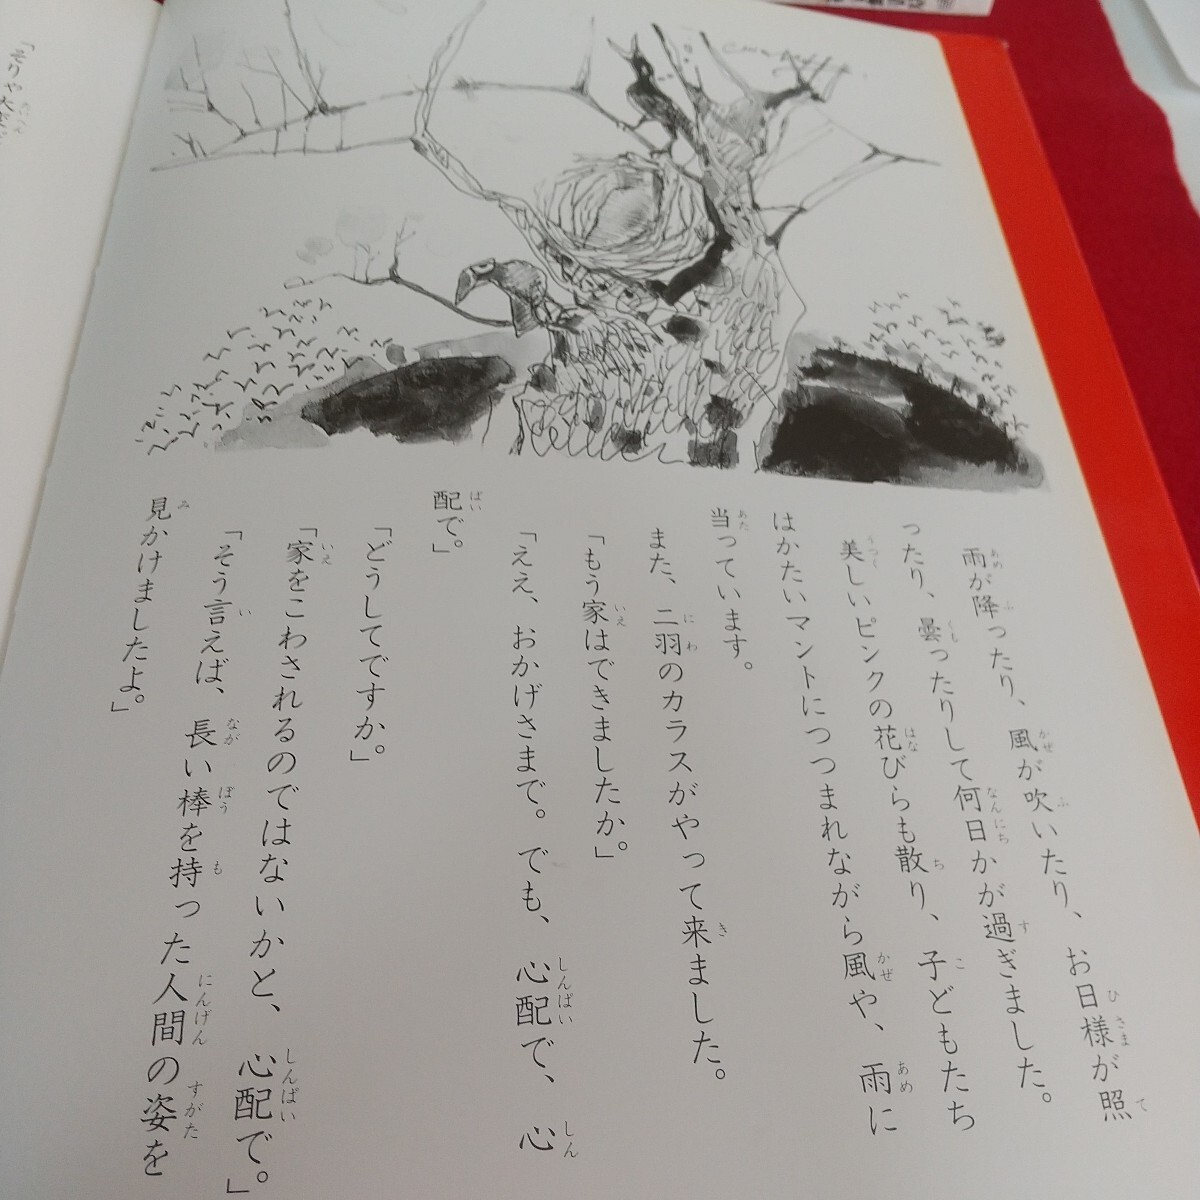 雨が降ったり、風が吹いたり、お日様が照
ったり、曇ったりして何日かが過ぎました。
美しいピンクの花びらも散り、子どもたち
はかたいマントにつつまれながら風や、雨に
当っています。
また、二羽のカラスがやって来ました。
「もう家はできましたか。」
「ええ、おかげさまで。でも、心配で、心
配で。」
「どうしてですか。」
「家をこわされるのではないかと、心配で。」
「そう言えば、長い棒を持った人間の姿を
見かけましたよ。」